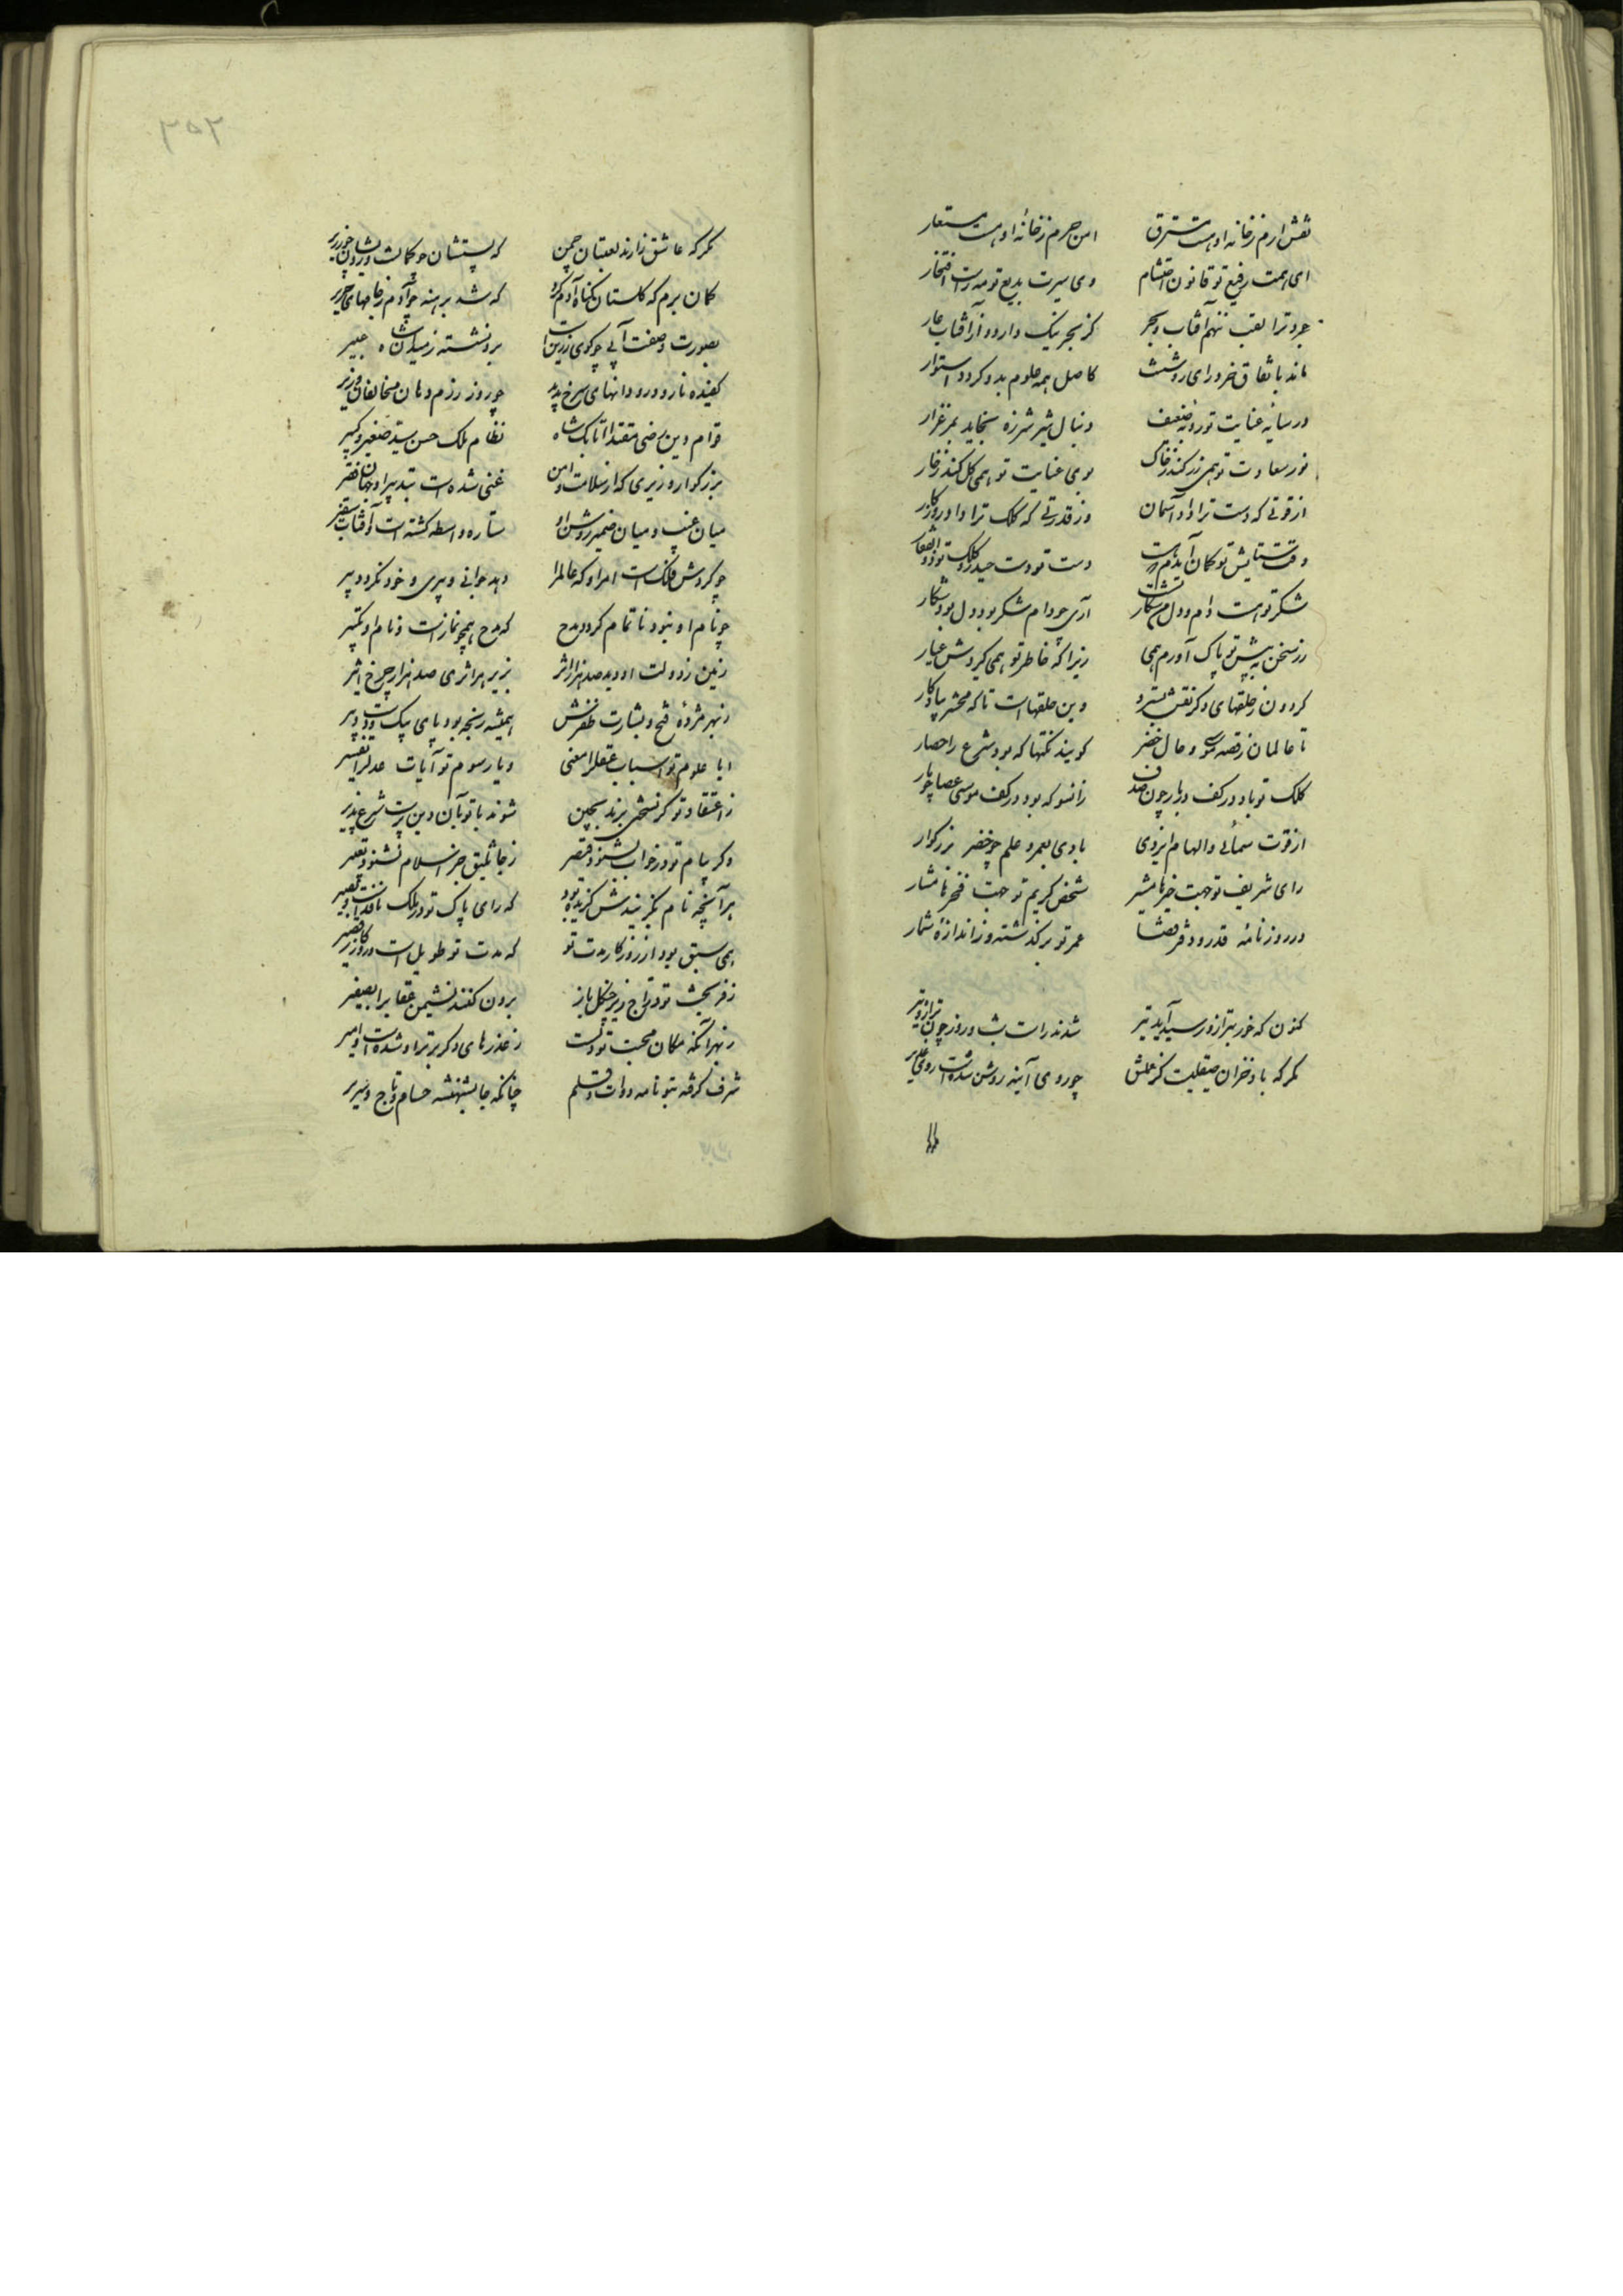 نقش ارم ز خانه او هست مسترق امن حرم ز خانهٔ او هست مستعار
ای همت رفیع تو قانون احتشام وی سیرت بدیع تو میراث افتخار
جود ترا لقب ننهم آفتاب و بحر کز بحر ننگ دارد و از آفتاب عار
ماند باتفاق خرد رای روشنت کاصل همه علوم بدو گردد استوار
در سایه عنایت تو روبه ضعیف دنبال شیر شرزه بخاید بمرغزار
نور سعادت تو همی زر کند ز خاک بوی عنایت تو همی گل کند ز خار
از قوتی که دست ترا داد آسمان وز قدرتی که کلک ترا داد روزگار
وقت ستایش تو گمان آیدم درست دست تو دست حیدر و کلک تو ذوالفقار
شکر تو هست دام و دل من شکار آری چو دام شکر بود دل بود شکار
زر سخن به پیش تو پاک آورم همی زیرا که خاطر تو همی گیردش عیار
گردون ز حلقهای دگر نقش بسترد وین حلقها است تا که محشر پادار
تا عالمان ز قصه موسی و حال خضر گویند نکتها که بود شرع را حصار
کلک تو باد در کف دربار چون صدف زانسو که بود در کف موسی عصا چو مار
از قوت سمائی و الهام ایزدی بادی بعمر و علم چو خضر بزرگوار
رای شریف تو جهت خیر ها مشیر شخص کریم تو جهت فخر ها مشار
در روزنامه قدر و دفر قضا عمر تو بر گذشته و ز اندازهٔ شمار
کنون که خور بترازو رسید و آمد تیر شدند راست شب و روز چون ترازو و تیر
مگر که باد خزان صیقلیست کز عملش چو روی آینه روشن شده است روی غدیر
۳۵۲
مگر که عاشق زارند لعبتان چمن که پشتشان چو کمانست و رویشان چو زریر
گمان برم که گلستان گناه آدم کرد که شد برهنه چو آدم ز جامهای حریر
بصورت و صفت آبی چو گوی زرین است برو نشسته ز میدان شاه عبیر
کفیده نار و درو دانهای سرخ پدید چو روز رزم دهان مخالفان وزیر
قوام دین رضی مقتدا اتابک شاه نظام ملک حسن سید صغیر و کبیر
بزرگوار وزیری که از سلامت و امن غنی شده است بتدبیر او جهان فقیر
میان غیب و میان ضمیر روشن او ستاره واسطه گشته است و آفتاب سفیر
چو گردش فلک است امر او که عالم را دهد جوانی و پیری و خود نگردد پیر
چو نام او نبود ناتمام گردد مدح که مدح همچو نماز است و نام او تکبیر
زمین ز دولت او دید صد هزار اثر بزیر هر اثری صد هزار چرخ اثیر
ز بهر مژدهٔ فتح و بشارت ظفرش همیشه رنجه بود پای پیک و دست دبیر
ایا علوم تو اسباب عقل را معنی ویا رسوم تو آیات عدل را تفسیر
ز اعتقاد تو گر نسختی برند بچین شوند با تو بآن دین پرست شرع پذیر
وگر پیام تو در خواب بشنود قیصر ز جاثلیق جز اسلام نشنود تعبیر
هر آنچه نام گزینندش گزیده بود که رای پاک تو در ملک ناقد است و بصیر
همی سبق بود از روزگار مدت تو که مدت تو طویل است و روزگار قصیر
ز فر بخت تو دراج زیر چنگل باز برون کنند نشیمن عقاب را بصفیر
ز بهر آنکه مکان محبت تو دلست ز عذرهای دگر برتر او شده است امیر
شرف گرفته بتو نامه و دوات و قلم چنانکه جا بشهنشه حسام و تاج و سریر